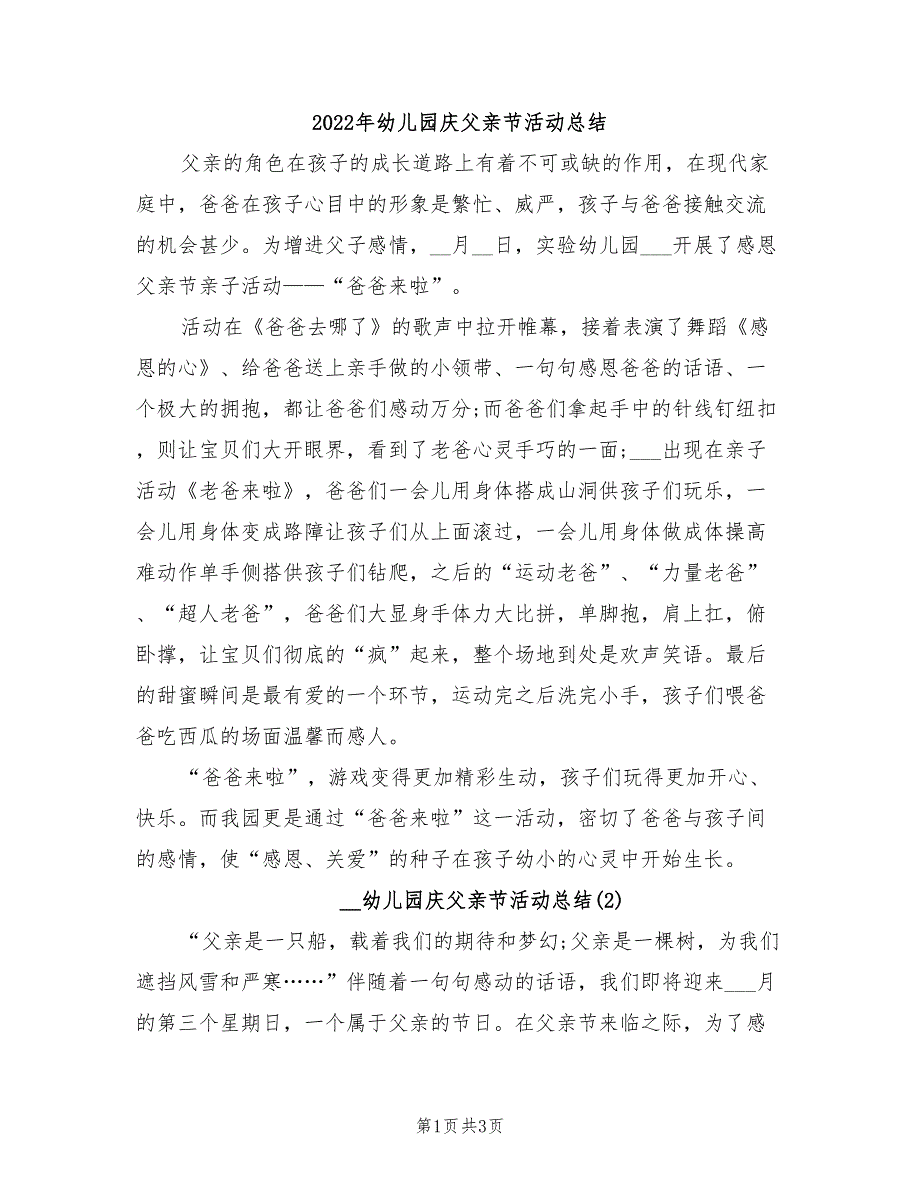 2022年幼儿园庆父亲节活动总结
父亲的角色在孩子的成长道路上有着不可或缺的作用，在现代家
庭中，爸爸在孩子心目中的形象是繁忙、威严，孩子与爸爸接触交流
的机会甚少。为增进父子感情，__月__日，实验幼儿园___开展了感恩
父亲节亲子活动——“爸爸来啦”。
活动在《爸爸去哪了》的歌声中拉开帷幕，接着表演了舞蹈《感
恩的心》、给爸爸送上亲手做的小领带、一句句感恩爸爸的话语、一
个极大的拥抱，都让爸爸们感动万分;而爸爸们拿起手中的针线钉纽扣
，则让宝贝们大开眼界，看到了老爸心灵手巧的一面;___出现在亲子
活动《老爸来啦》，爸爸们一会儿用身体搭成山洞供孩子们玩乐，一
会儿用身体变成路障让孩子们从上面滚过，一会儿用身体做成体操高
难动作单手侧搭供孩子们钻爬，之后的“运动老爸”、“力量老爸”
、“超人老爸”，爸爸们大显身手体力大比拼，单脚抱，肩上扛，俯
卧撑，让宝贝们彻底的“疯”起来，整个场地到处是欢声笑语。最后
的甜蜜瞬间是最有爱的一个环节，运动完之后洗完小手，孩子们喂爸
爸吃西瓜的场面温馨而感人。
“爸爸来啦”，游戏变得更加精彩生动，孩子们玩得更加开心、
快乐。而我园更是通过“爸爸来啦”这一活动，密切了爸爸与孩子间
的感情，使“感恩、关爱”的种子在孩子幼小的心灵中开始生长。
__幼儿园庆父亲节活动总结(2)
“父亲是一只船，载着我们的期待和梦幻;父亲是一棵树，为我们
遮挡风雪和严寒……”伴随着一句句感动的话语，我们即将迎来___月
的第三个星期日，一个属于父亲的节日。在父亲节来临之际，为了感
第1页共3页